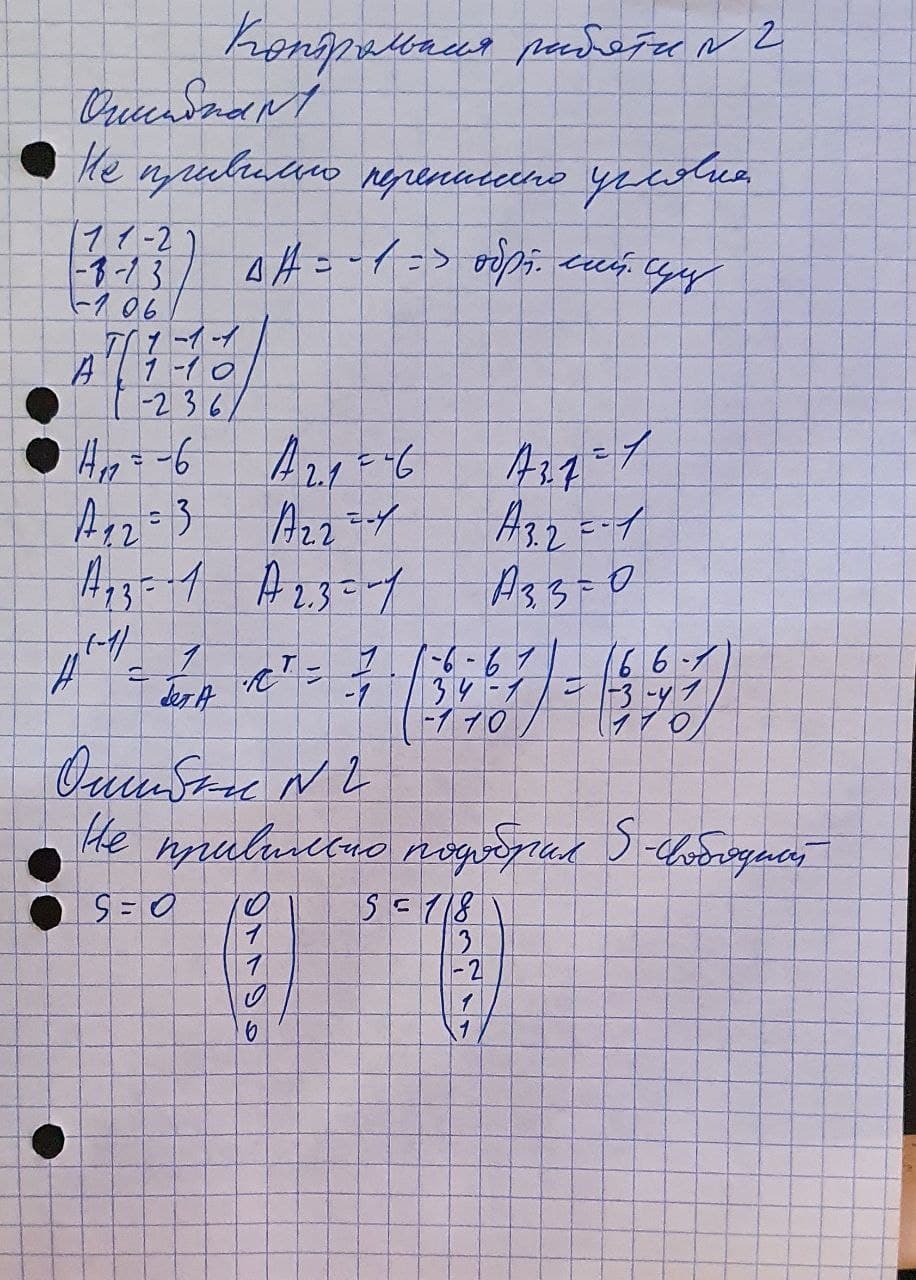 Контрольная работа №2
Ошибка №1
Не правильно переписано условие
(1 1 -2
-1 -1 3
-1 0 6) ΔA = -1 => обрт. мат. сущ
A^T (1 -1 -1
1 -1 0
-2 3 6)
A_11 = -6 A_2.1 = -6 A_3.1 = 1
A_1.2 = 3 A_2.2 = 4 A_3.2 = -1
A_1.3 = -1 A_2.3 = -1 A_3.3 = 0
A^(-1) = 1/det A · C^T = 1/-1 · (-6 -6 1; 3 4 -1; -1 -1 0) = (6 6 -1; -3 -4 1; 1 1 0)
Ошибка №2
Не правильно подобрал S-свободный
S = 0 (0 S = 1 (8
1 3
1 -2
0 1
0) 1)